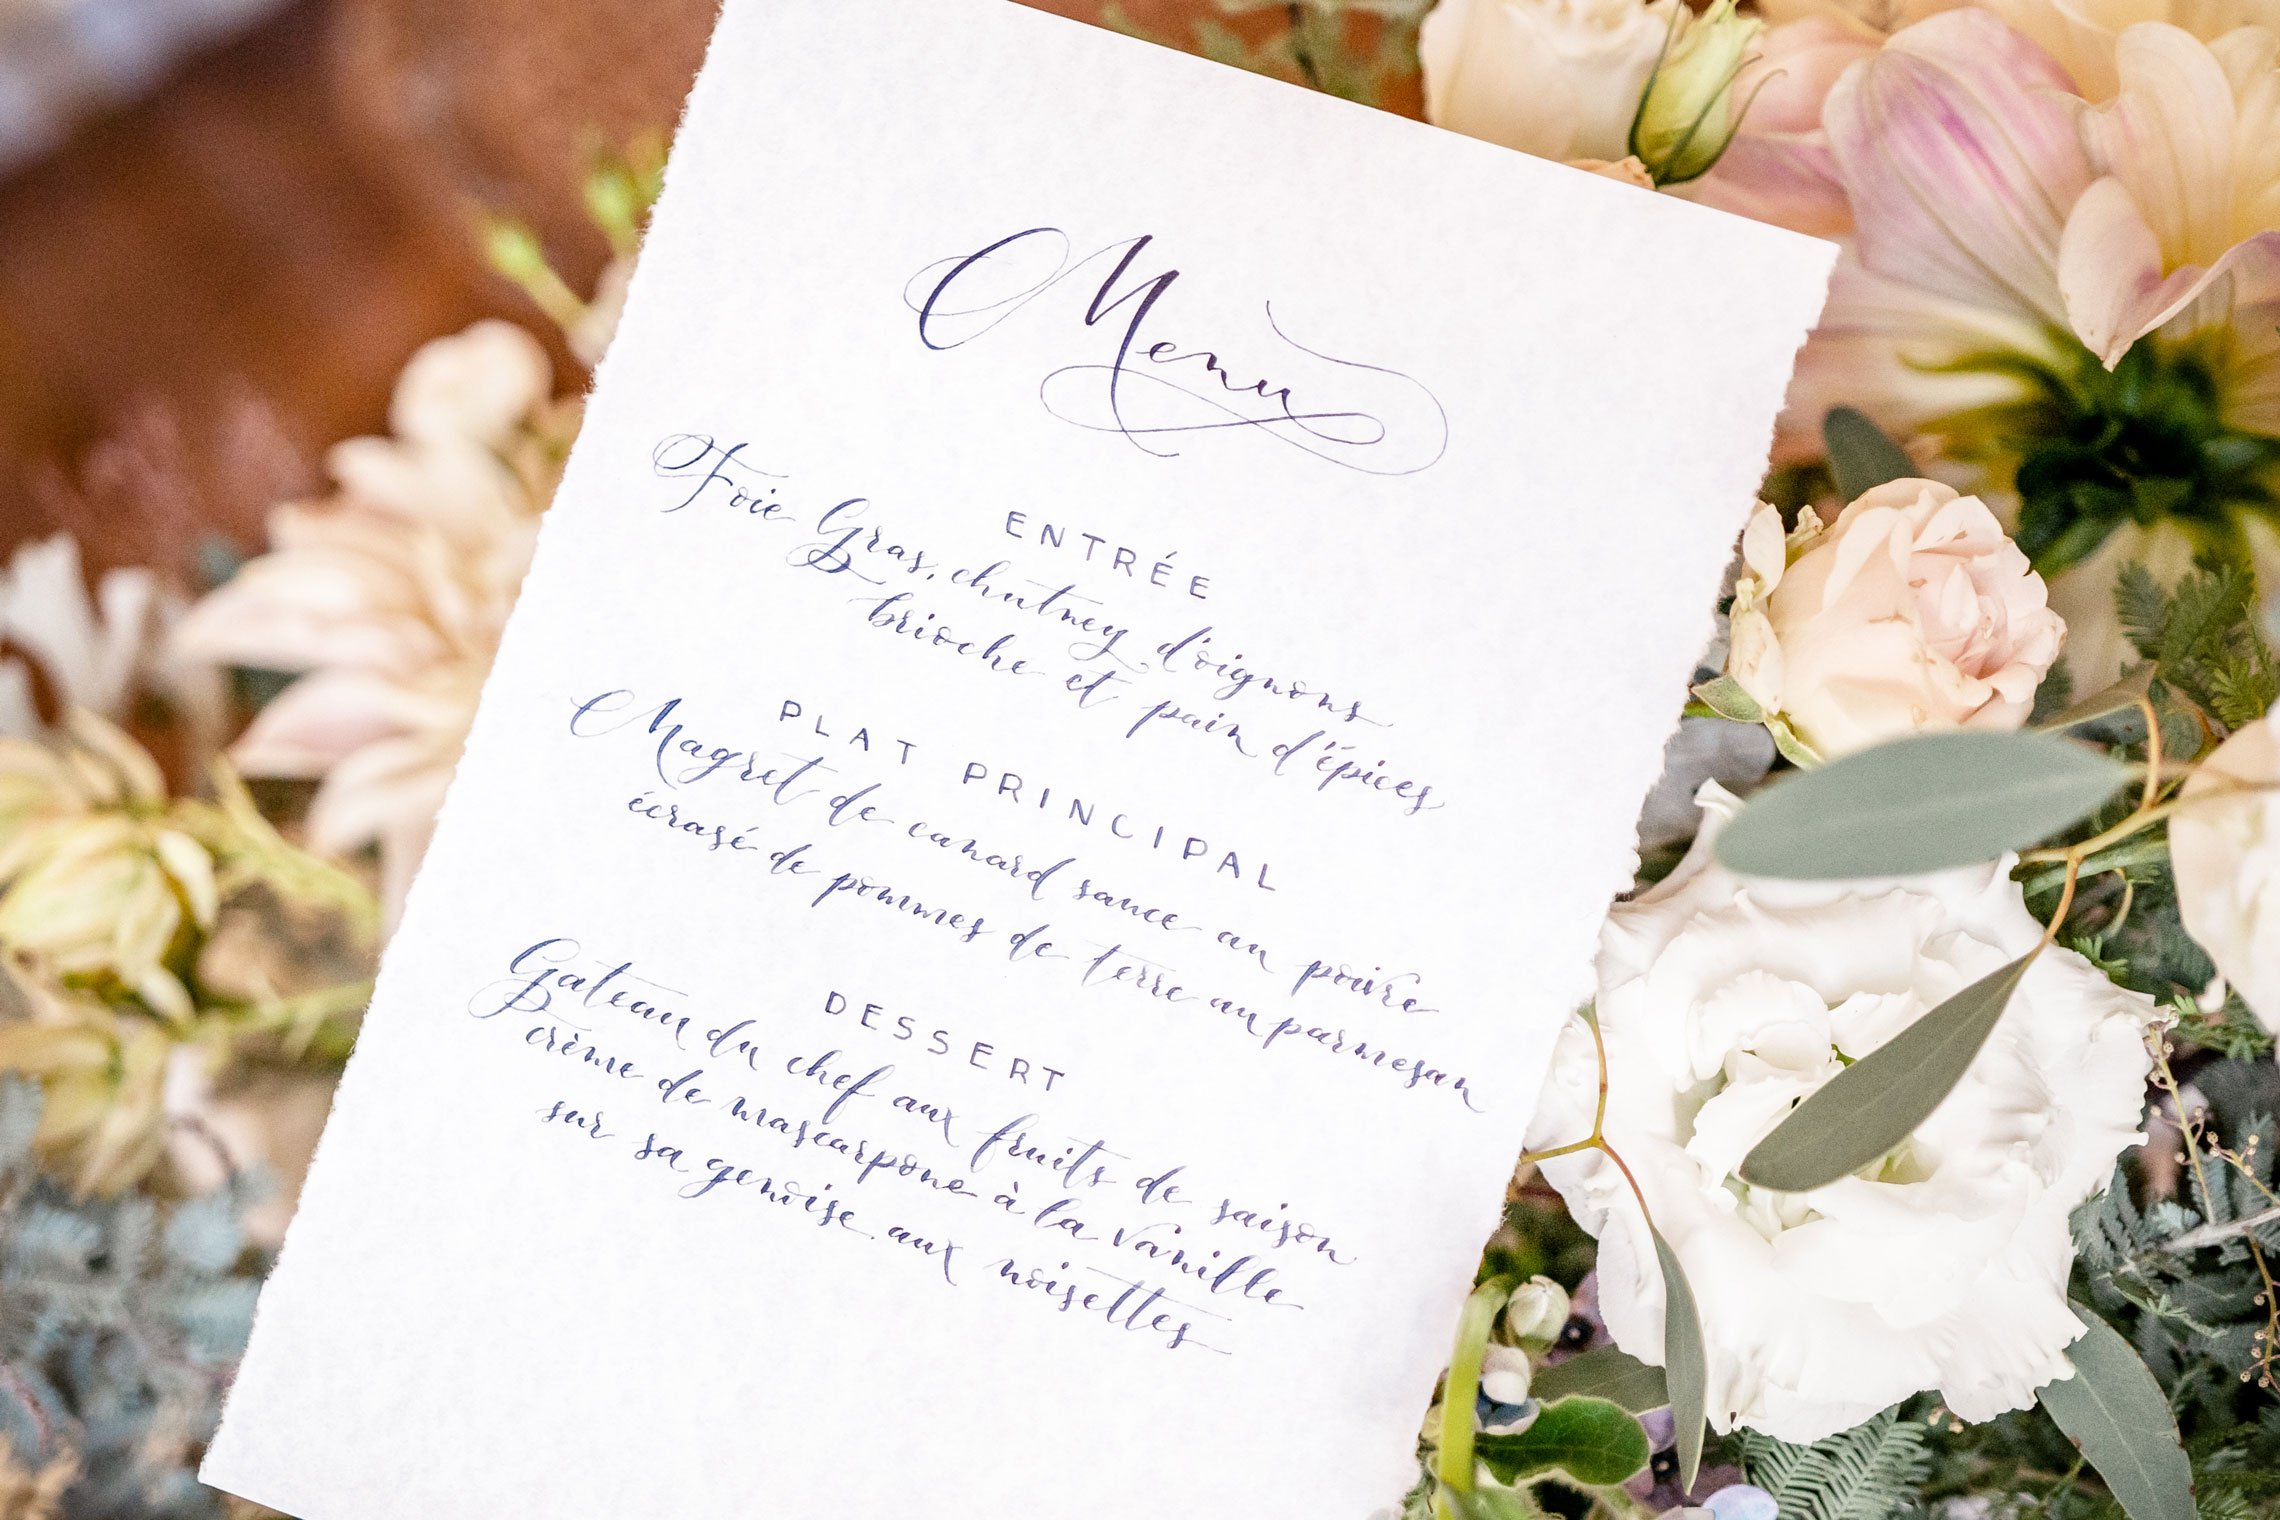 Menu
ENTRÉE
Foie Gras, chutney d'oignons
brioche et pain d'épices
PLAT PRINCIPAL
Magret de canard sauce au poivre
écrasé de pommes de terre au parmesan
DESSERT
Gâteau du chef aux fruits de saison
crème de mascarpone à la vanille
sur sa genoise aux noisettes